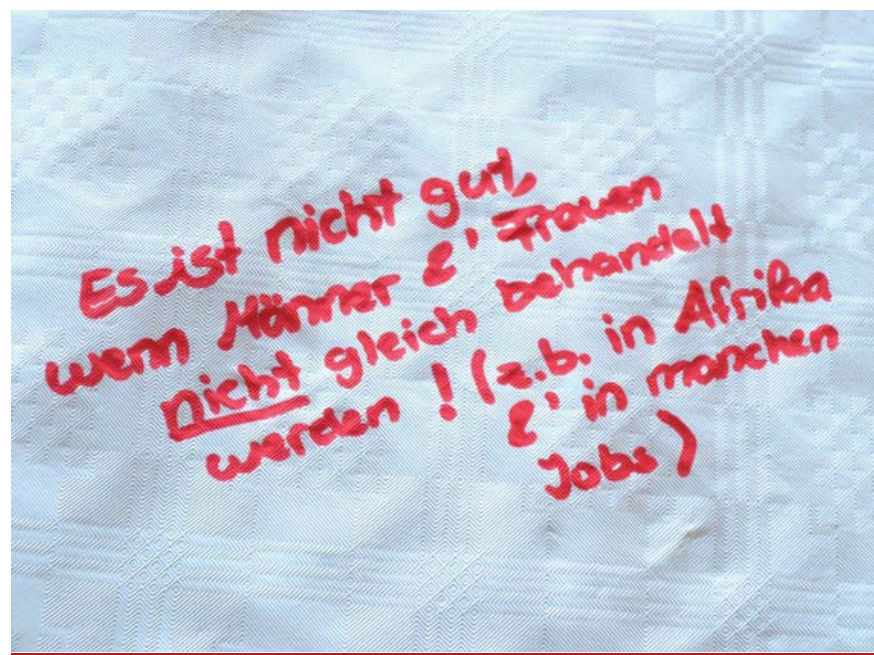 Es ist nicht gut,
wenn Männer &' Frauen
nicht gleich behandelt
werden ! (z.b. in Afrika
&' in manchen
Jobs)